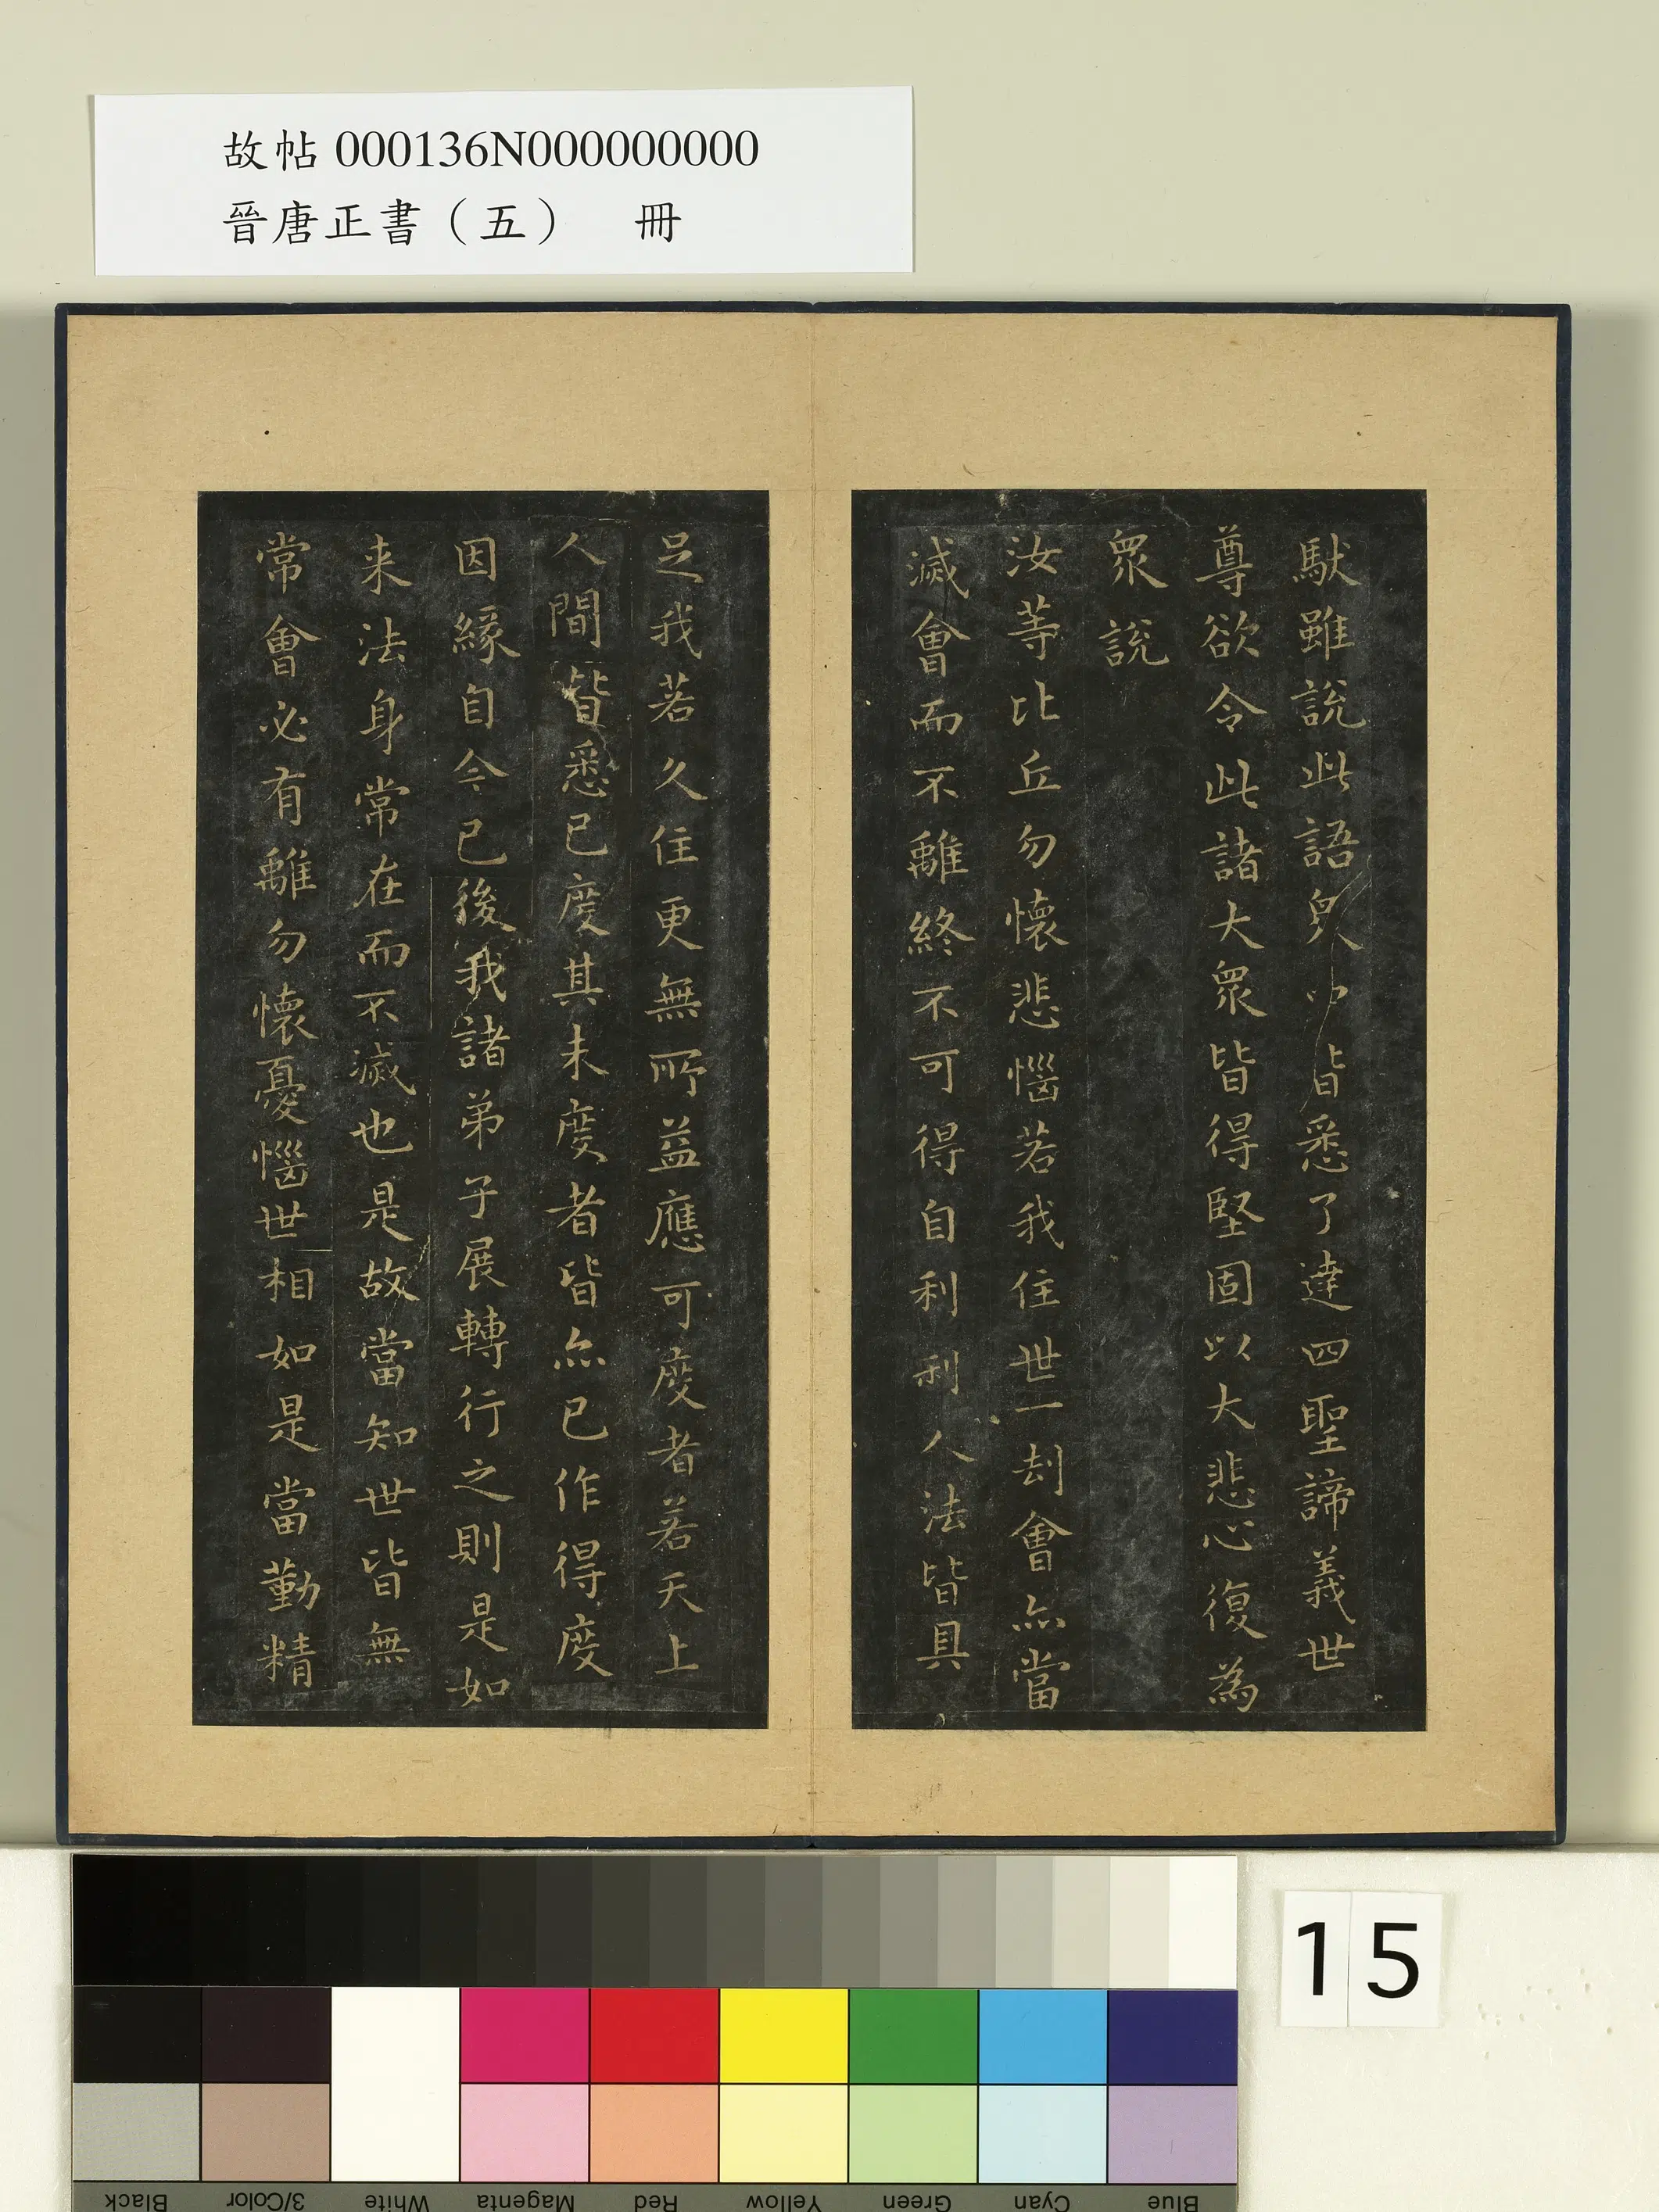 故帖 000136N000000000
晉唐正書（五）　冊
馱雖說此語眾中皆悉了達四聖諦義世
尊欲令此諸大眾皆得堅固以大悲心復為
眾說
汝等比丘勿懷悲惱若我住世一劫會亦當
滅會而不離終不可得自利利人法皆具
足我若久住更無所益應可度者若天上
人間皆悉已度其未度者皆亦已作得度
因緣自今已後我諸弟子展轉行之則是如
来法身常在而不滅也是故當知世皆無
常會必有離勿懷憂惱世相如是當勤精
15
Black 3/Color White Magenta Red Yellow Green Cyan Blue